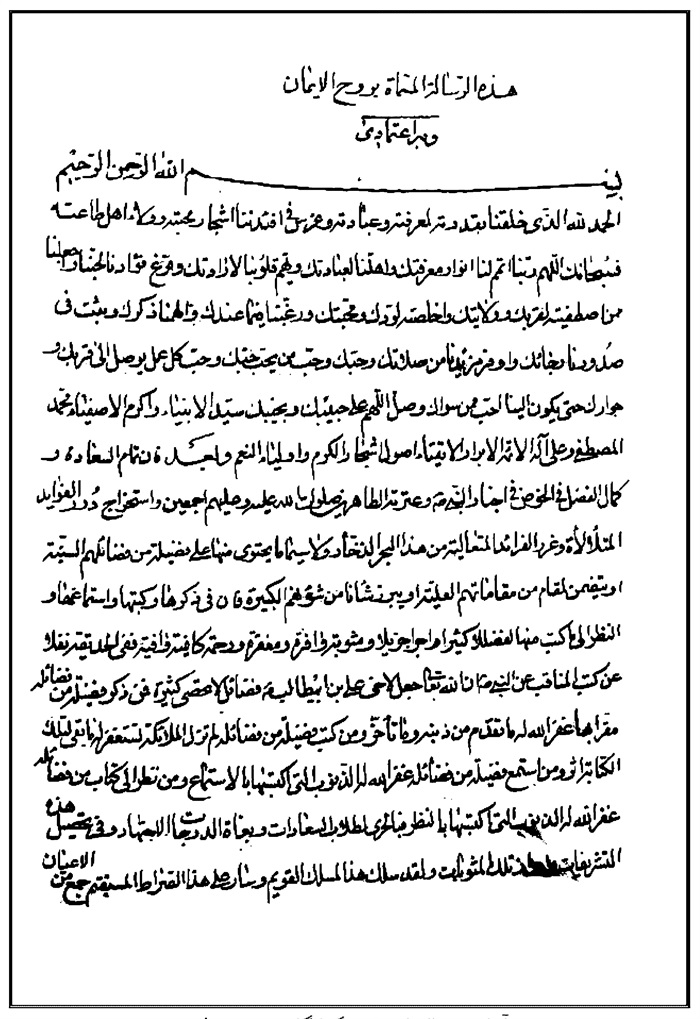 هذه الرسالة المسماة بروح الايمان
وبه اعتمادي
بسم الله الرحمن الرحيم
الحمد لله الذي خلقنا بقدرته لمعرفته وعبادته وغرس في افئدتنا اشجار محبته وولاء اهل طاعته
فسبحانك اللهم ربنا اتمم لنا انوار معرفتك واهلنا لعبادتك وهيم قلوبنا لارادتك وفرغ فؤادنا لحبك واجعلنا
ممن اصطفيته لقربك وولايتك واخلصته لودك ومحبتك ورغبتنا فيما عندك والهمنا ذكرك وثبت في
صدورنا رجائك واوفر مزيدنا من صلاتك وحبك وحب من يحبك وحب كل عمل يوصل الى قربك و
جوارك حتى يكون الينا احب من سواك وصل اللهم على حبيبك ونجيبك سيد الانبياء واكرم الاصفياء محمد
المصطفى وعلى آله الائمة الابرار الاتقياء اصول اشجار الكرم واولياء النعم وبعد فان تمام السعادة و
كمال الفضل في الخوض في اخبار النبي ص وعترته الطاهرين صلوات الله عليه وعليهم اجمعين واستخراج درر الفوايد
المتلألأة وغرر الفرائد المتعالية من هذا البحر الذخار ولا سيما ما يحتوى منها على فضيلة من فضائلهم السنية
او يتضمن لمقام من مقاماتهم العلية او يبرز شانا من شؤنهم الكبيرة فان في ذكرها وكتبها واستماعها و
النظر الى ما كتب منها لفضلا كثيرا واجرا جزيلا ومثوبة وافرة ومغفرة ورحمة كافية وافية ففى الحديقة نقلا
عن كتب المناقب عن النبي ص ان الله تعالى جعل لاخى على بن ابيطالب ع فضائل لا تحصى كثيرة فمن ذكر فضيلة من فضائله
مقرا بها غفر الله له ما تقدم من ذنبه وما تأخر ومن كتب فضيلة من فضائله لم تزل الملائكة تستغفر له ما بقى لتلك
الكتابة اثر ومن استمع فضيلة من فضائله غفر الله له الذنوب التى اكتسبها بالاستماع ومن نظر الى كتاب من فضائله
غفر الله له الذنوب التى اكتسبها بالنظر فبالحرى لطلاب السعادات وبغاة الدرجات الاجتهاد في تحصيل هذه
التشريفات تلك المثوبات ولقد سلك هذا المسلك القويم وسار على هذا الصراط المستقيم جمع من الاعيان